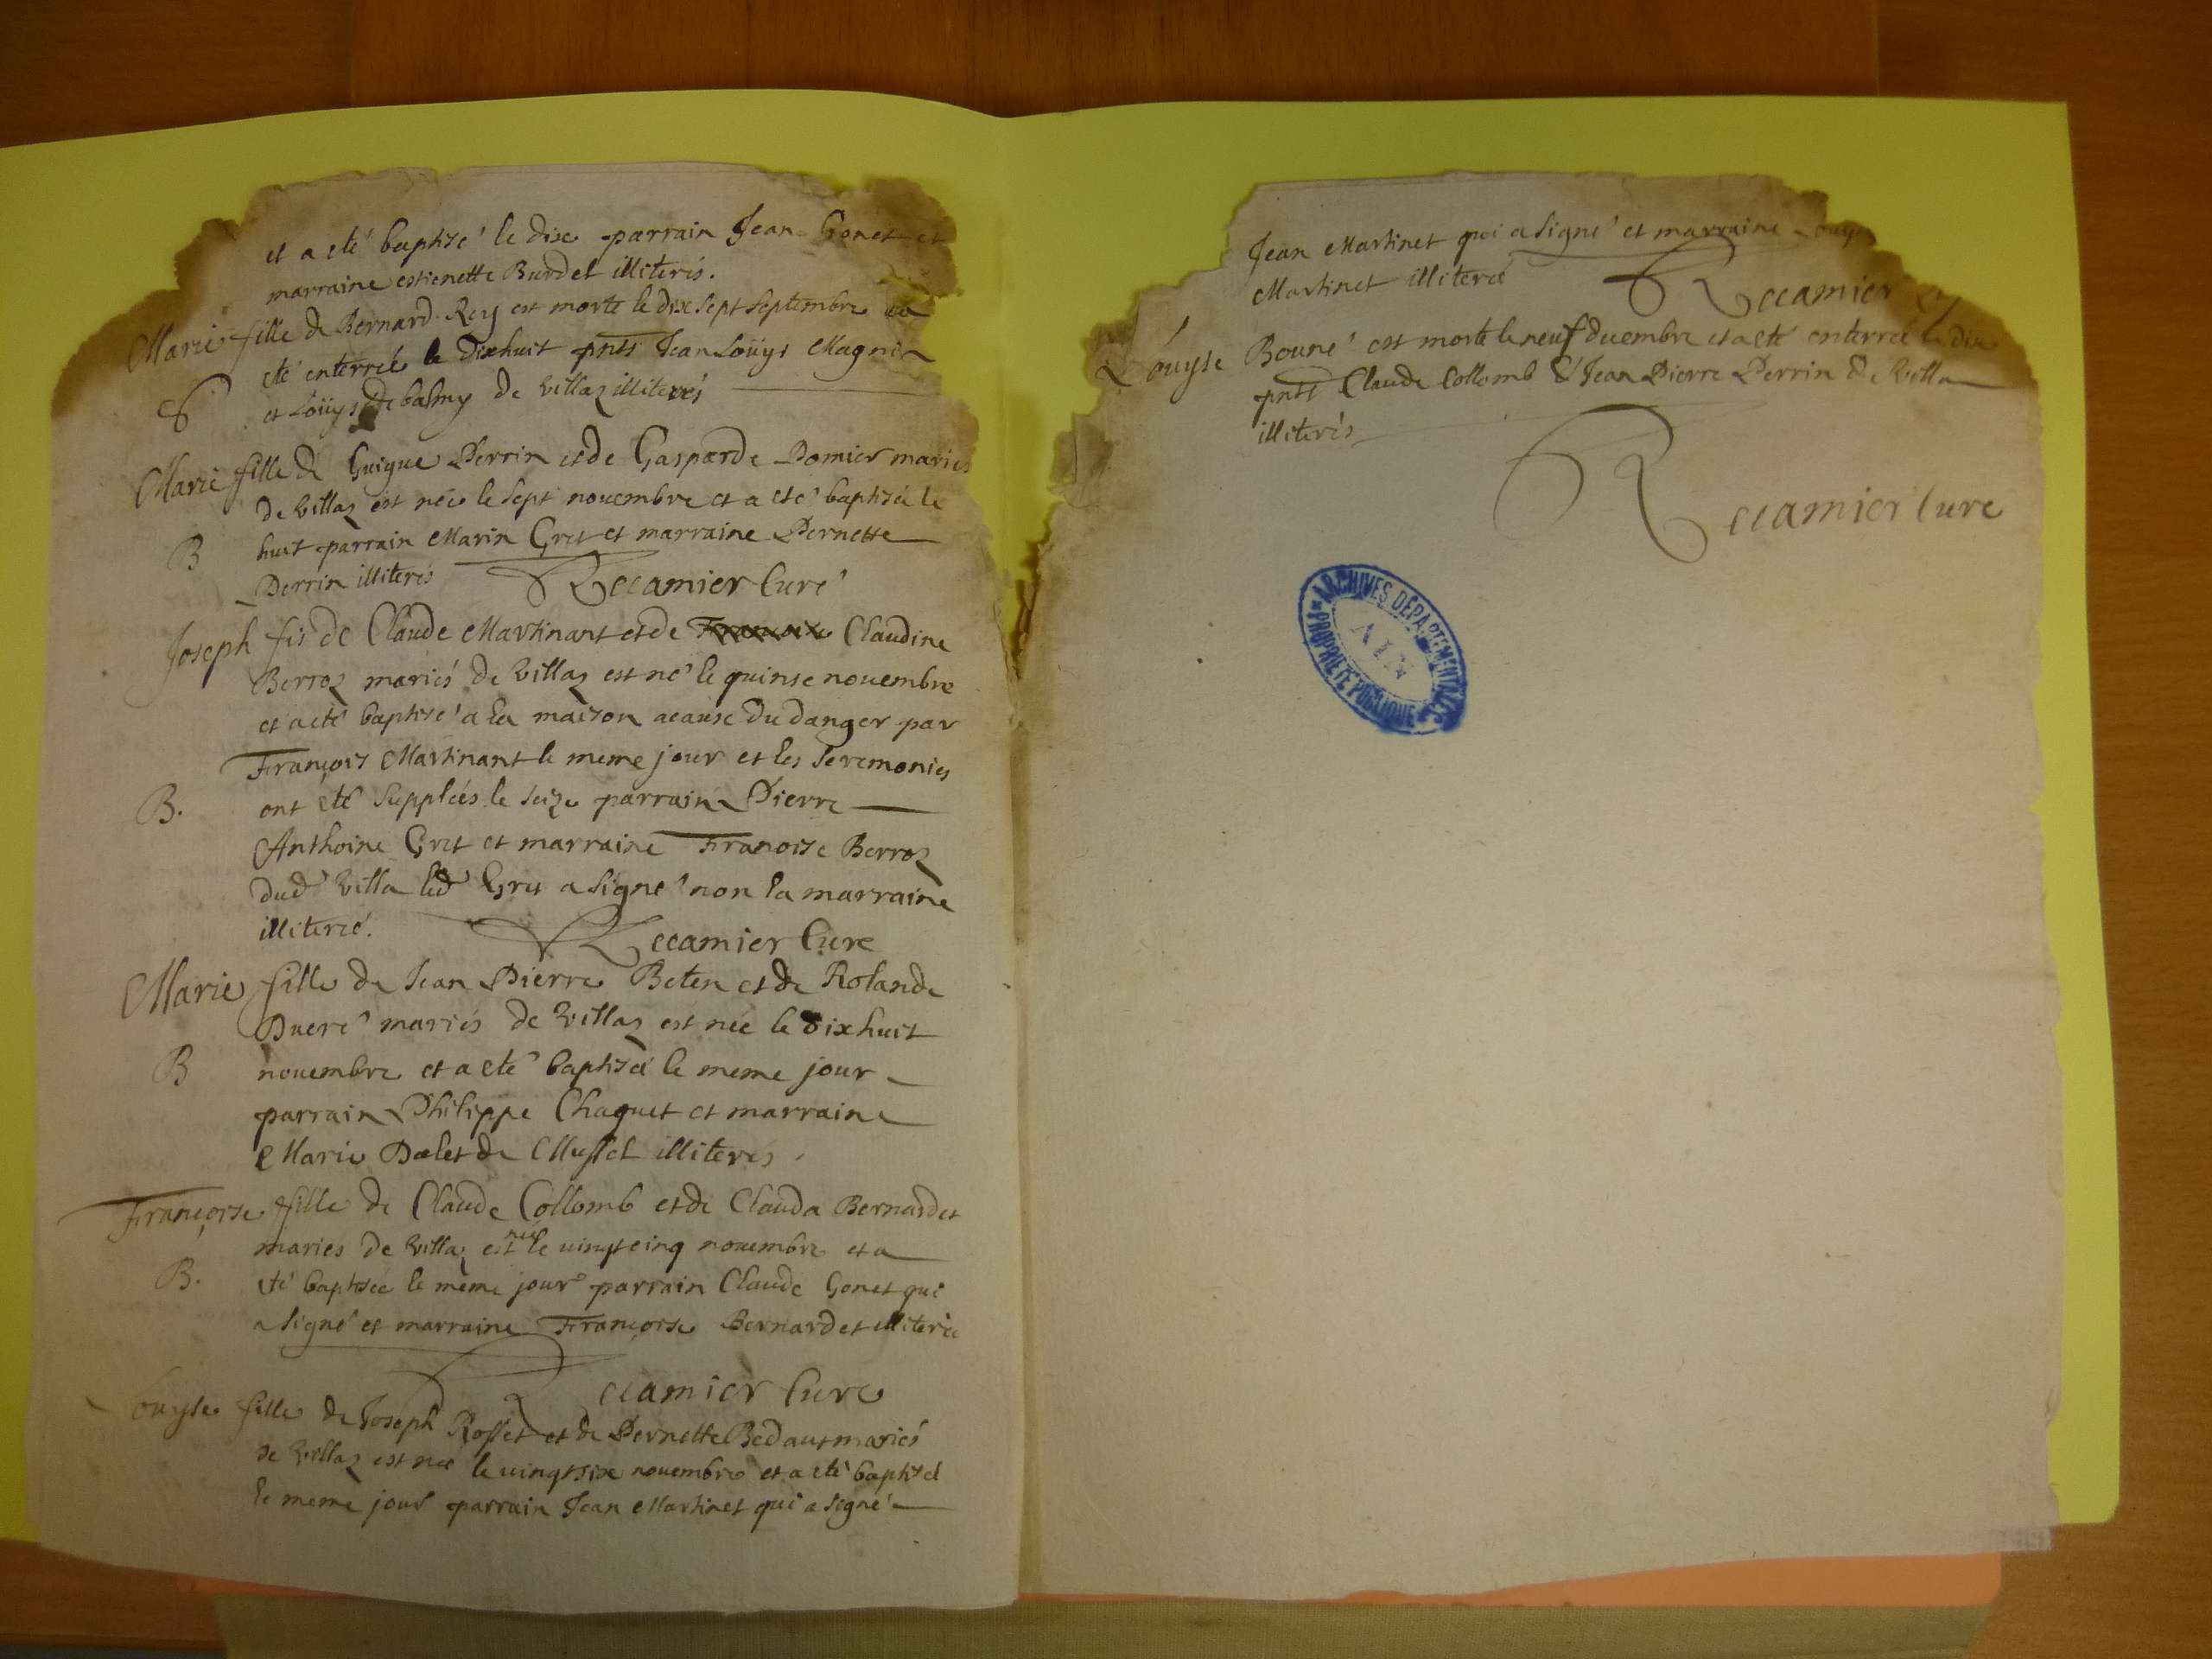 et a eté baptisé le dise parrain Jean Gonet et
marraine estienette Burdet illiterés.
Marie fille de Bernard Rey est morte le dix sept septembre
eté enterreé le dixhuit pnts Jean Loüys Magnin
S et Loüys debalmy de Villaz illiterés
Marie fille de Guigue Perrin et de Gasparde Pomier mariés
de Villaz est née le sept novembre et a eté baptisée le
B huit parrain Marin Gret et marraine Pernette
Perrin illiterés Recamier Curé
Joseph fis de Claude Martinant et de Claudine
Berroz mariés de Villaz est né le quinse novembre
et a eté baptisé a la maison acause du danger par
François Martinant le meme jour et les seremonies
B. ont eté suppléés le seize parrain Pierre
Anthoine Gret et marraine Franoise Berroz
dud Villa led Gret a signé non la marraine
illitereé. Recamier Cure
Marie fille de Jean Pierre Beten et de Rolande
Ducré mariés de Villaz est née le dixhuit
B novembre et a eté baptisée le meme jour
parrain Philippe Chaquet et marraine
Marie de Mussel illiterés
Françoise fille de Claude Collomb et de Clauda Bernardet
maries de Villaz est née le vingtcinq novembre et a
B. eté baptisée le meme jour parrain Claude Gonet qui
a signé et marraine Françoise Bernardet illiterée
Recamier Cure
Louyse fille de Joseph Rosset et de Pernette Bedaut mariés
de Villaz est née le vingtsix novembre et a eté baptisé
le meme jour parrain Jean Martinet qui a signé
Jean Martinet qui a signé et marraine Louyse
Martinet illitereé Recamier
Louyse Bouné est morte le neuf decembre et a eté enterreé le dix
pnts Claude Collomb & Jean Pierre Perrin de Villa
illiterés
Recamier Cure
ARCHIVES DÉPARTEMENTALES
AIN
PROPRIÉTÉ PUBLIQUE